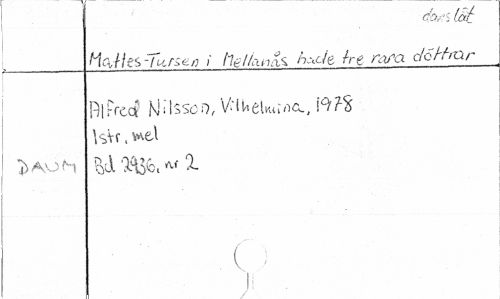 danslåt
Mattes-Tursen i Mellanås hade tre rara döttrar
Alfred Nilsson, Vilhelmina, 1978
1str, mel
DAUM Bd 2936, nr 2